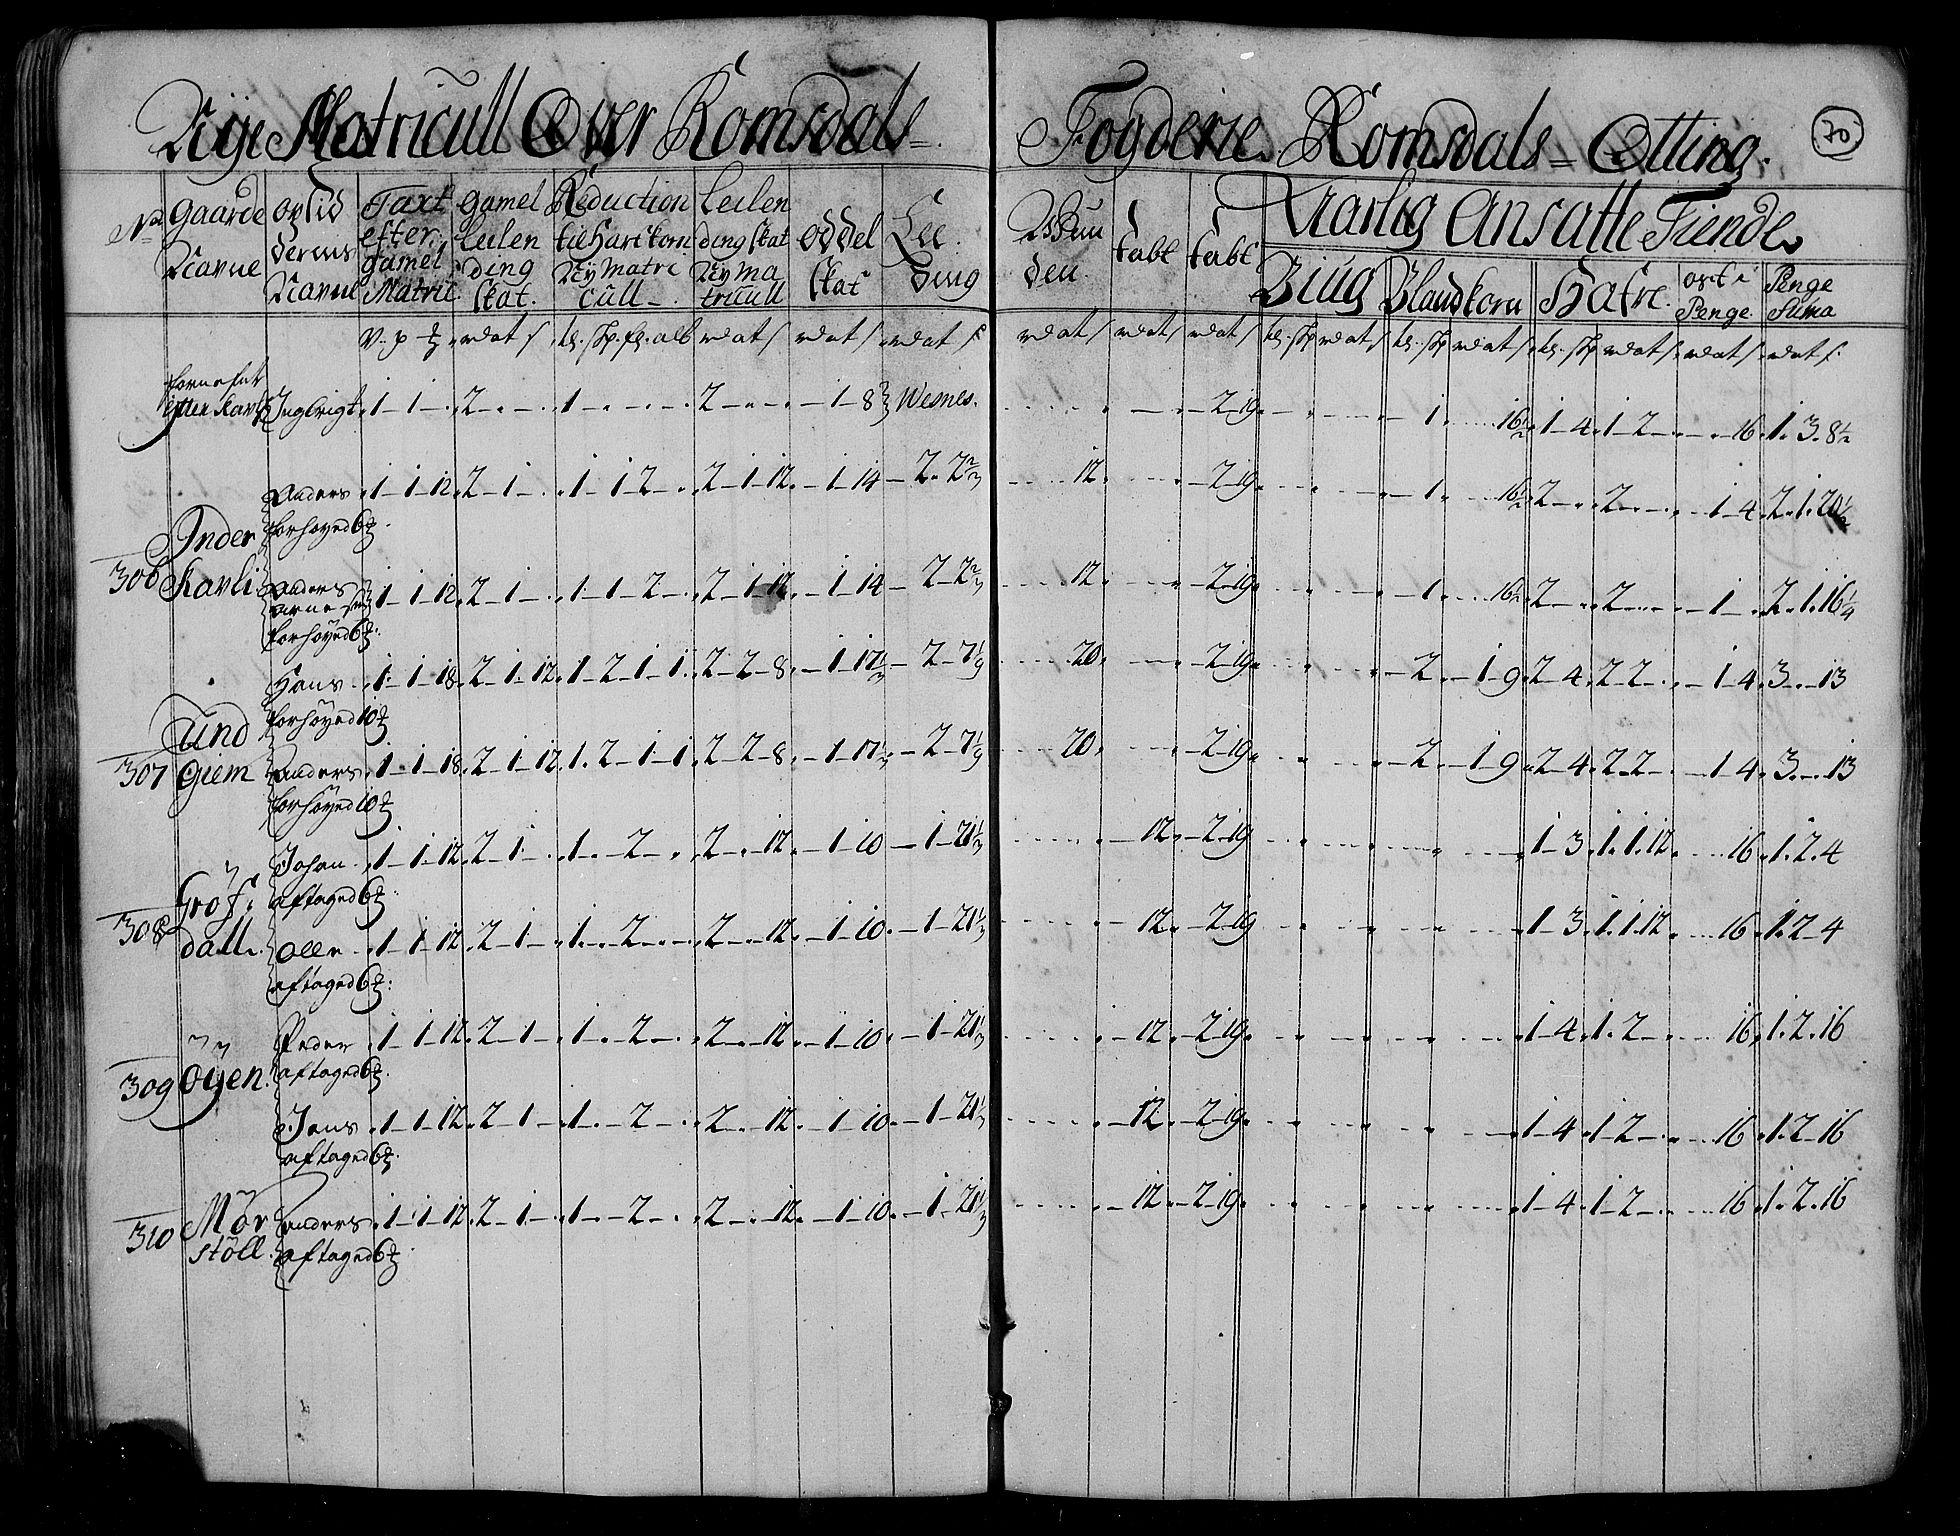 Nÿe Matricull Over Romsdals
Fogderie Romsdals Otting
70
No
Gaarde Navne
Opsid dernis Navne
Taxt efter gamel Matric
gamel Leilending skat.
Reduction til Hart korn Nÿ Matricull
Leilending skat Nÿ Matricull
Oddel skat
Lee. ding
Wun den
tabt
tabt
Aarlig Ansatte Tiende
Biug
Blandkorn
Hafre
ost i Penge
Penge Suma
Ingebrigt 1-1- 2 1 2 1-8 Wesnes. 2-19 1 16½ 1-4 1-2 16 1. 3. 8½
306 Inder Kavli
Anders 1-1-12 2-1 1-1-2 2-1-12 1-14 2-2⅔ 12 2-19 1 16½ 2 2 1-4 2-1-20½
forhøyed 6
Anders Arnesen 1-1-12 2-1 1-1-2 2-1-12 1-14 2-2⅔ 12 2-19 1 16½ 2 2 1 2-1-16¼
forhøyed 6
307 Undgiem
Hans 1-1-18 2-1-12 1-2-1-1 2-2-8 1-17⅓ 2-7⅑ 20 2-19 2 1-9 2-4 2-2 1-4 3-13
forhøyed 10
Anders 1-1-18 2-1-12 1-2-1-1 2-2-8 1-17⅓ 2-7⅑ 20 2-19 2 1-9 2-4 2-2 1-4 3-13
forhøyed 10
308 Grøfdall
Johan 1-1-12 2-1 1-2 2-12 1-10 1-21⅓ 12 2-19 1-3 1-1-12 16 1-2-4
aftaged 6
Olle 1-1-12 2-1 1-2 2-12 1-10 1-21⅓ 12 2-19 1-3 1-1-12 16 1-2-4
aftaged 6
309 Øÿen
Peder 1-1-12 2-1 1-2 2-12 1-10 1-21⅓ 12 2-19 1-4 1-2 16 1-2-16
aftaged 6
Jens 1-1-12 2-1 1-2 2-12 1-10 1-21⅓ 12 2-19 1-4 1-2 16 1-2-16
aftaged 6
310 Mørstøll
Anders 1-1-12 2-1 1-2 2-12 1-10 1-21⅓ 12 2-19 1-4 1-2 16 1-2-16
aftaged 6